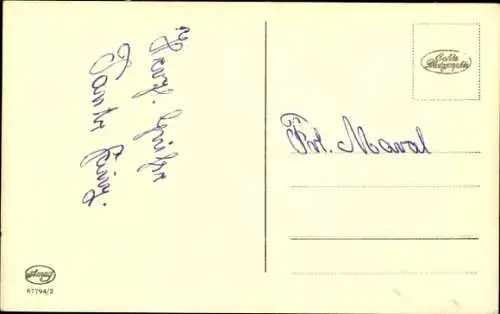 Herzl. Grüße
Tante
Echte Photographie
Frl. Maval
Amag
67794/2